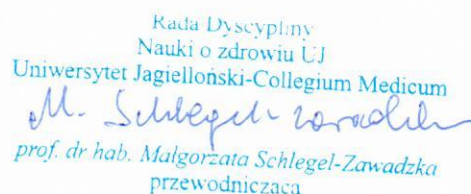 Rada Dyscypliny
Nauki o zdrowiu UJ
Uniwersytet Jagielloński-Collegium Medicum
M. Schlegel-Zawadzka
prof. dr hab. Małgorzata Schlegel-Zawadzka
przewodnicząca